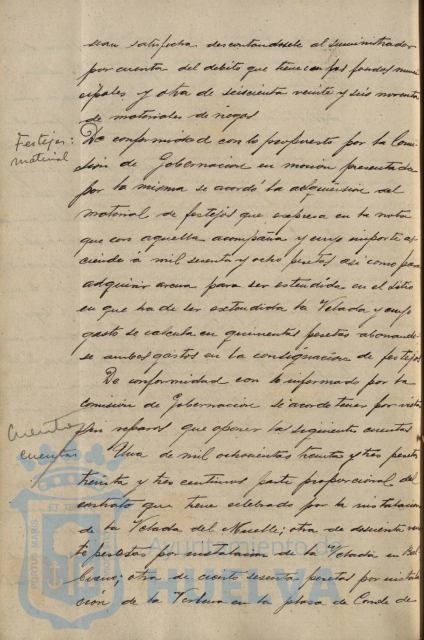 sean satisfecha descontandosele al suministrador
por cuenta del debito que tiene con los fondos muni
cipales y otra de seiscienta veinte y seis noventa
de materiales de riegos
Festejos:
material
De conformidad con lo propuesto por la Comi
sión de Gobernacion en mocion presentada
por la misma se acordó la adquisicion del
material de festejos que expresa en la nota
que con aquella acompaña y cuyo importe as
ciende á mil setenta y ocho pesetas asi como para
adquirir arena para ser estendida en el sitio
en que ha de ser extendida la Velada y cuyo
gasto se calcula en quinientas pesetas abonando
se ambos gastos en la consignacion de festejos
De conformidad con lo informado por la
Comision de Gobernacion se acordo tener por vistas
sin reparos que oponer las siguientes cuentas
Cuentas
cuentas
Una de mil ochocientas treinta y tres pesetas
treinta y tres centimos parte proporcional del
contrato que tiene celebrado por la instalacion
de la Velada del Muelle; otra de doscienta
pesetas por instalacion de la Velada en
otra de ciento sesenta pesetas por instala
ción de la Verbena en la plaza de Conde de
PORTUS MARIS
ET TERRAE
Ayuntamiento de
HUELVA